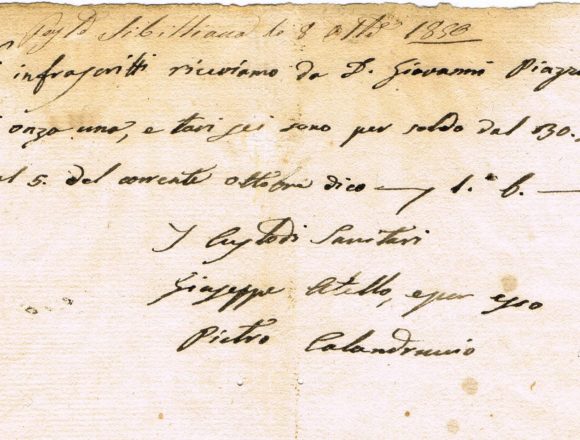 li 8 8bre 1850
infrascritti riceviamo da D. Giovanni Piazza
onza una, e tari sei sono per soldo dal 30.
al 5. del corrente ottobre dico — 1." 6. —
I Custodi Sanitari
Giuseppe Atello, e per esso
Pietro Calandruccio